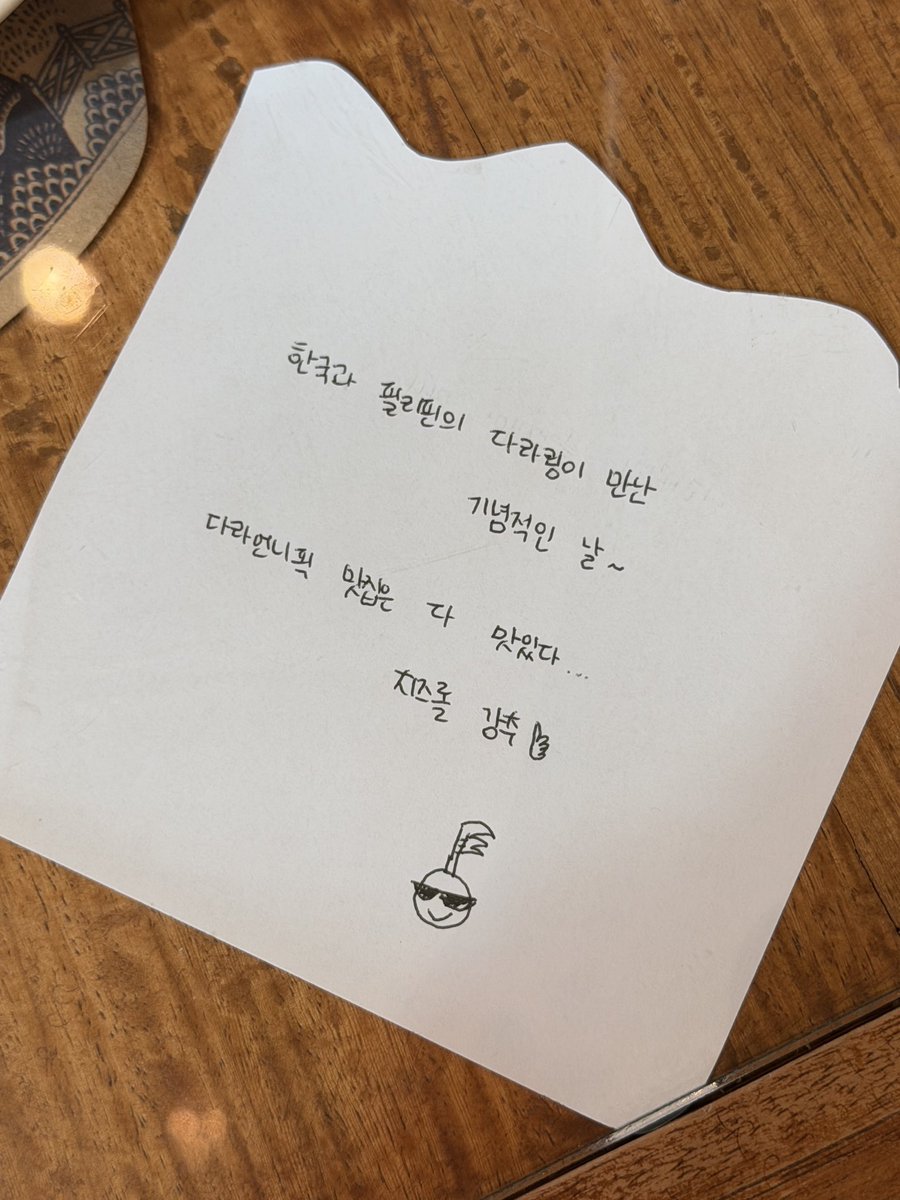 한국과 필리핀의 다라링이 만난
기념적인 날~
다라언니픽 맛집은 다 맛있다...
치즈롤 강추